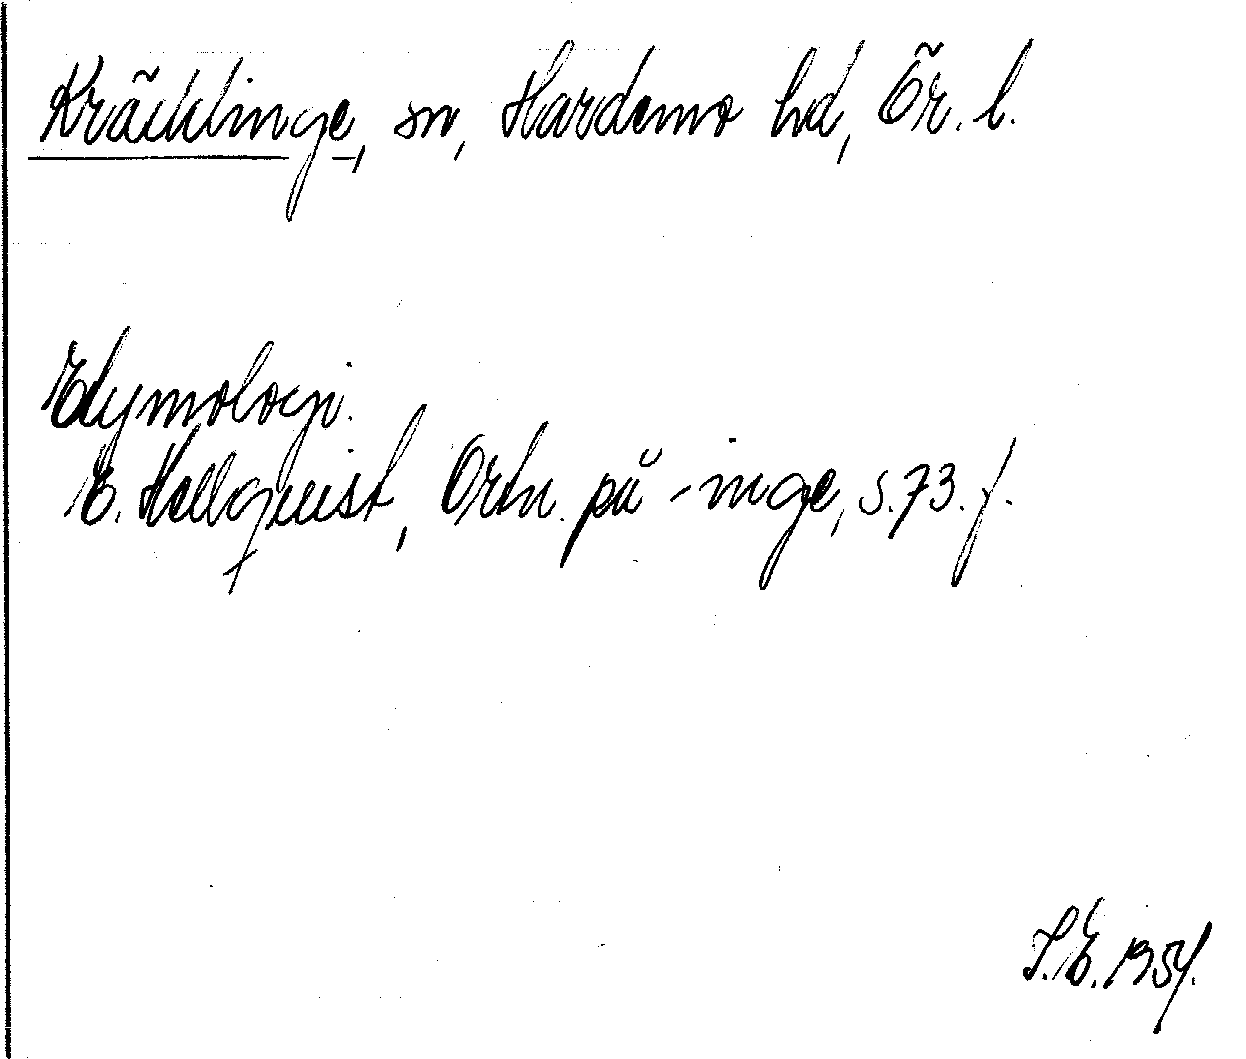 Kräcklinge, sn, Hardemo hd, Ör. l.
Etymologi.
E. Hellquist, Ortn. på -inge, s. 73. f.
S. E. 1954.